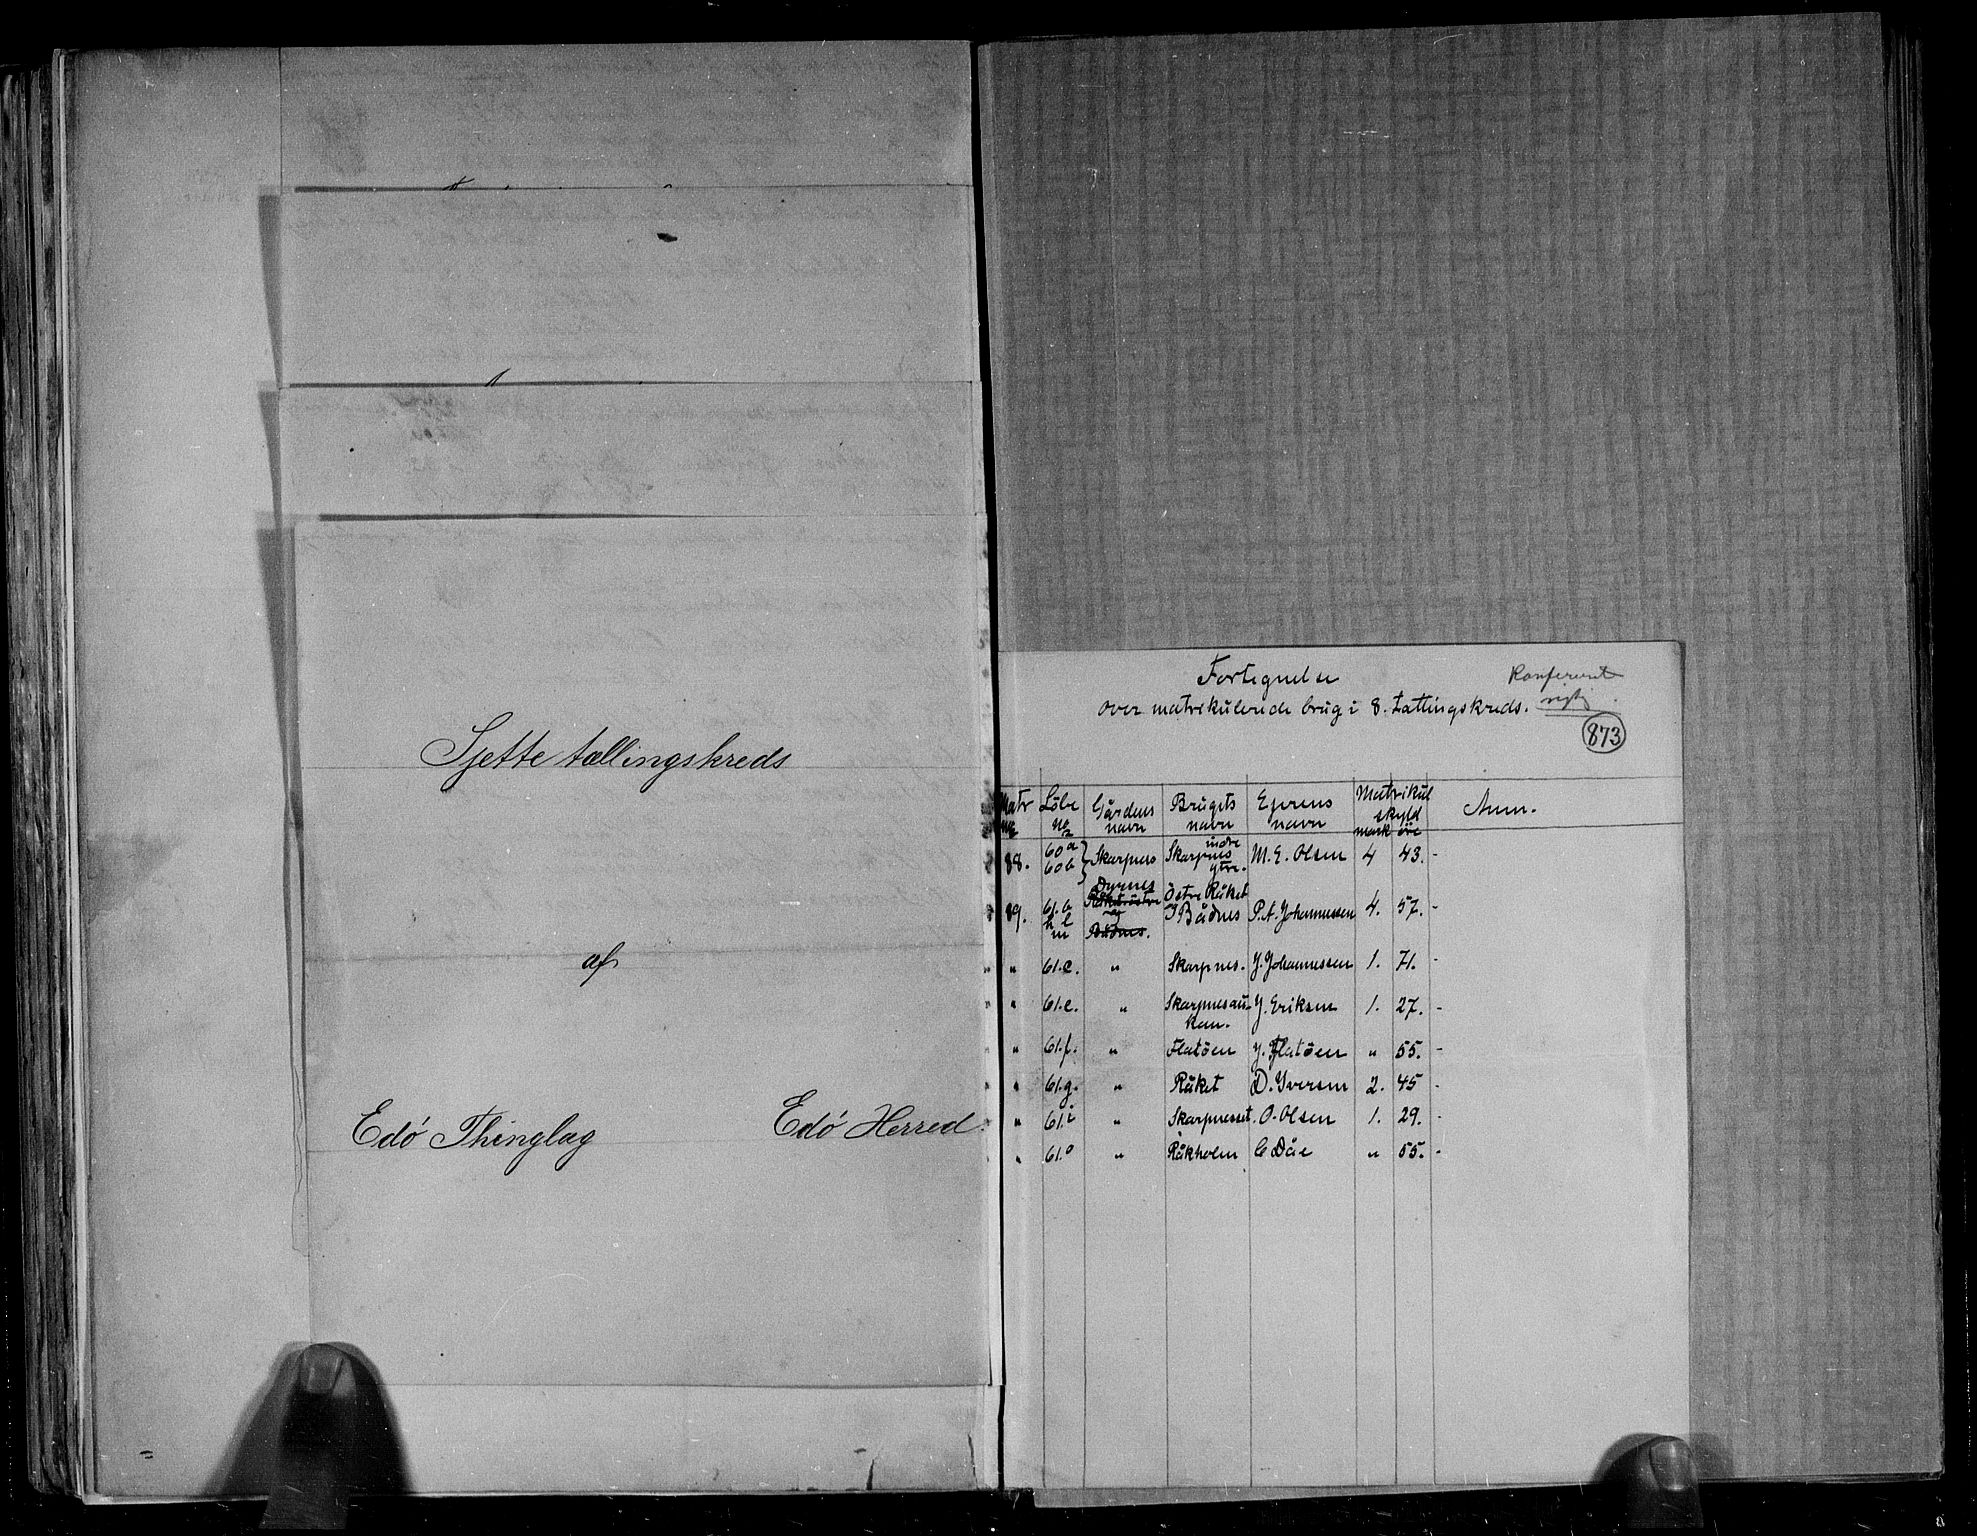 Sjette tællingskreds
af
Edö Thinglag Edö Herred.
Fortegnelse
over matrikulerede brug i 8. tællingskreds.
Konfereret
rigtig.
873
Matr № Löbe № Gårdens navn Brugets navn Ejerens navn Matrikul skyld mark öre Anm.
88. 60a 60b } Skarpnes Skarpnes indre ytre. M. E. Olsen 4 43. -
89. 61.b k l m Dyrnes Råket östre og Bådnes. Östre Råket I Bådnes P. A. Johannessen 4. 57. -
" " 61.c. " Skarpnes. J. Johannessen 1. 71. -
" 61.e. " Skarpnesau- kan. J. Eriksen 1. 27. -
" 61.f. " Flatöen J. Flatöen " 55. -
" 61.g. " Råket D. Iversen 2. 45 -
" 61.i " Skarpneset. O. Olsen 1. 29. -
" 61.o " Råkholm C Dåe " 55. -